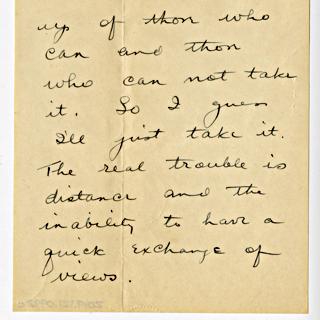 up of those who
can and those
who can not take
it. So I guess
I'll just take it.
The real trouble is
distance and the
inability to have a
quick exchange of
views.